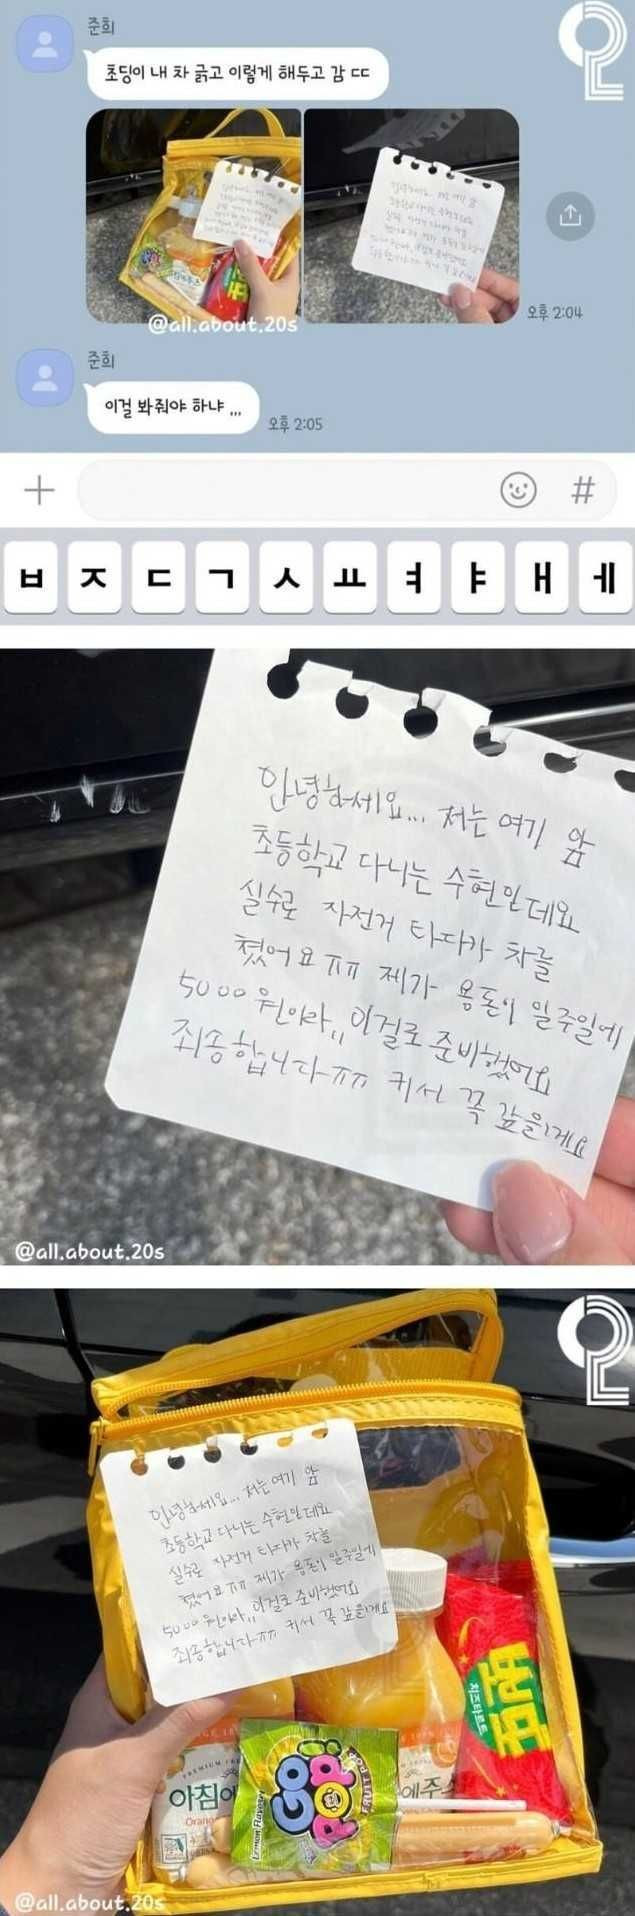 준희
초딩이 내 차 긁고 이렇게 해두고 감 ㄷㄷ
@all.about.20s
오후 2:04
준희
이걸 봐줘야 하냐 ,,,
오후 2:05
+
#
ㅂ ㅈ ㄷ ㄱ ㅅ ㅛ ㅕ ㅑ ㅐ ㅔ
안녕하세요... 저는 여기 앞
초등학교 다니는 수현인데요
실수로 자전거 타다가 차를
쳤어요ㅠㅠ 제가 용돈이 일주일에
5000원이라,, 이걸로 준비했어요
죄송합니다ㅠㅠ 커서 꼭 갚을게요
@all.about.20s
안녕하세요... 저는 여기 앞
초등학교 다니는 수현인데요
실수로 자전거 타다가 차를
쳤어요ㅠㅠ 제가 용돈이 일주일에
5000원이라,, 이걸로 준비했어요
죄송합니다ㅠㅠ 커서 꼭 갚을게요
치즈타르트
PREMIUM
아침에
Orange
에주스
GO!
POP!
FRUIT POP
Lemon Flavor
@all.about.20s